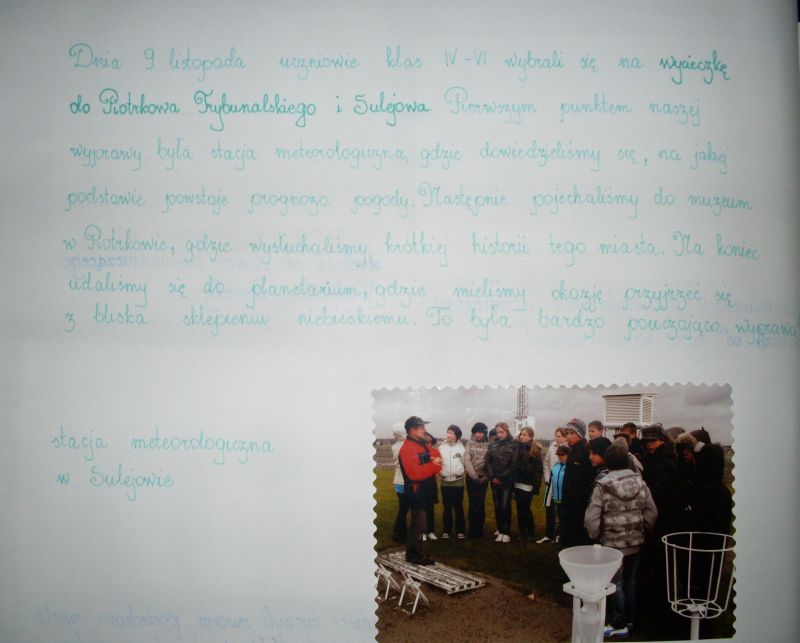 Dnia 9 listopada uczniowie klas IV-VI wybrali się na wycieczkę
do Piotrkowa Trybunalskiego i Sulejowa Pierwszym punktem naszej
wyprawy była stacja meteorologiczna, gdzie dowiedzieliśmy się, na jakiej
podstawie powstaje prognoza pogody. Następnie pojechaliśmy do muzeum
w Piotrkowie, gdzie wysłuchaliśmy krótkiej historii tego miasta. Na koniec
udaliśmy się do planetarium, gdzie mieliśmy okazję przyjrzeć się
z bliska sklepieniu niebieskiemu. To była bardzo pouczająca wyprawa
stacja meteorologiczna
w Sulejowie